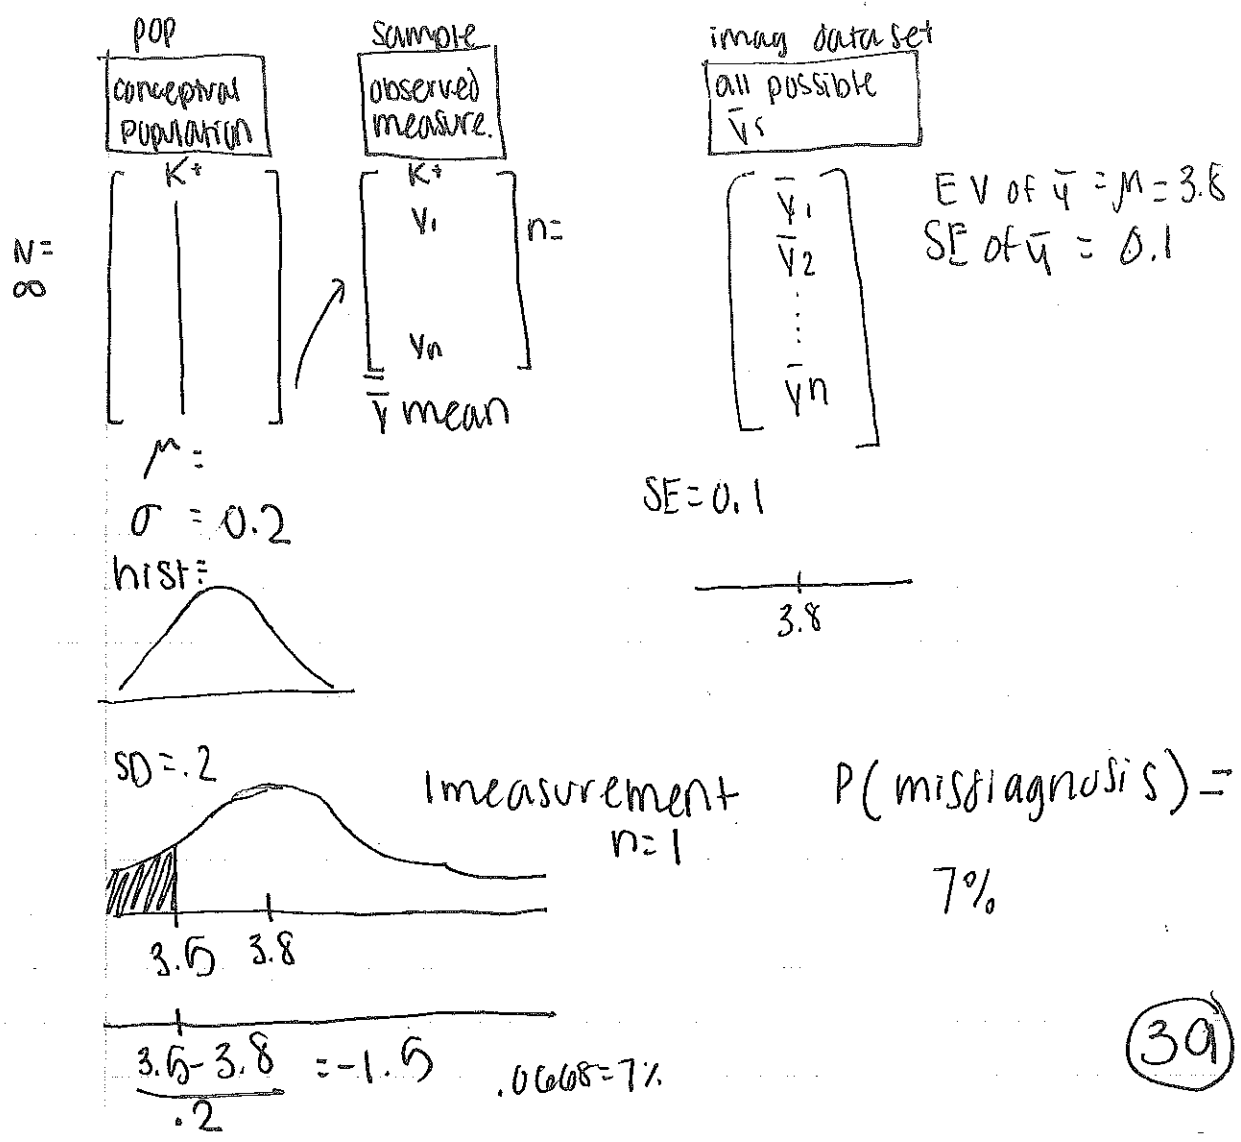 pop
conceptual
population
K+
N=
∞
μ =
σ = 0.2
hist:
sample
observed
measure.
K+
y₁
yₙ
n=
ȳ mean
imag data set
all possible
ȳs
ȳ₁
ȳ₂
⋮
ȳn
EV of ȳ = μ = 3.8
SE of ȳ = 0.1
SE = 0.1
3.8
SD = .2
1 measurement
n=1
P(misdiagnosis) =
7%
3.5 3.8
3.5-3.8 = -1.5
.2
.0668=7%
39